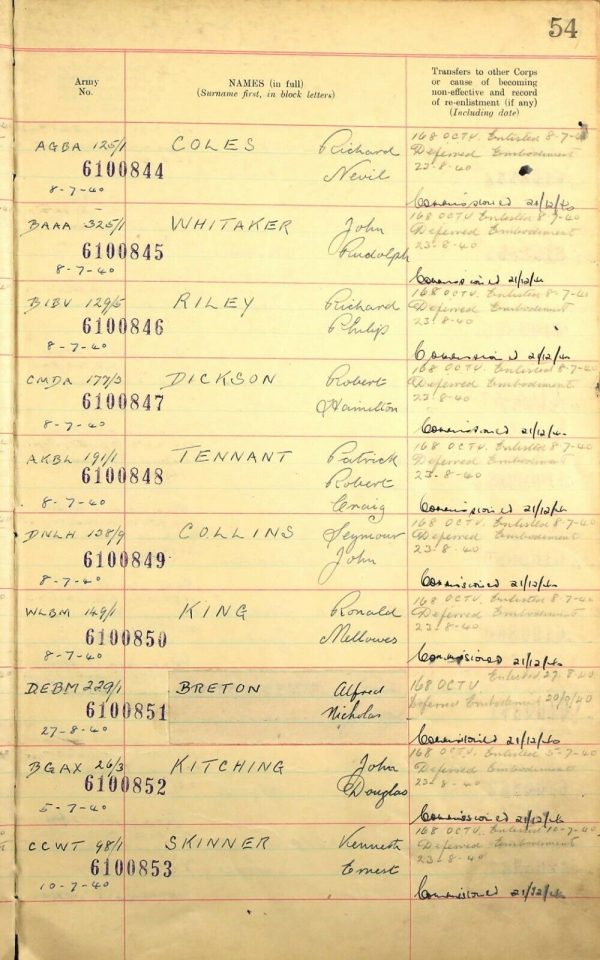 54
Army
No.
NAMES (in full)
(Surname first, in block letters)
Transfers to other Corps
or cause of becoming
non-effective and record
of re-enlistment (if any)
(Including date)
AGBA 125/1 COLES Richard
6100844 Nevil
8-7-40
168 OCTU. Enlisted 8-7-40
Deferred Embodiment
23-8-40
Commissioned 21/12/40
BAAA 325/1 WHITAKER John
6100845 Rudolph
8-7-40
168 OCTU Enlisted 8-7-40
Deferred Embodiment
23-8-40
Commissioned 21/12/40
BIBV 129/5 RILEY Richard
6100846 Philip
8-7-40
168 OCTU. Enlisted 8-7-40
Deferred Embodiment
23-8-40
Commissioned 21/12/40
CMDA 177/3 DICKSON Robert
6100847 Hamilton
8-7-40
168 OCTU. Enlisted 8-7-40
Deferred Embodiment
23-8-40
Commissioned 21/12/40
AKBL 191/1 TENNANT Patrick
6100848 Robert
8-7-40 Craig
168 OCTU. Enlisted 8-7-40
Deferred Embodiment
23-8-40
Commissioned 21/12/40
DNLH 138/9 COLLINS Seymour
6100849 John
8-7-40
168 OCTU. Enlisted 8-7-40
Deferred Embodiment
23-8-40
Commissioned 21/12/40
WLBM 149/1 KING Ronald
6100850 Mellowes
8-7-40
168 OCTU. Enlisted 8-7-40
Deferred Embodiment
23-8-40
Commissioned 21/12/40
DEBM 229/1 BRETON Alfred
6100851 Nicholas
27-8-40
168 OCTU Enlisted 27-8-40
Deferred Embodiment 20/9/40
Commissioned 21/12/40
BGAX 26/3 KITCHING John
6100852 Douglas
5-7-40
168 OCTU. Enlisted 5-7-40
Deferred Embodiment
23-8-40
Commissioned 21/12/40
CCWT 98/1 SKINNER Kenneth
6100853 Ernest
10-7-40
168 OCTU. Enlisted 10-7-40
Deferred Embodiment
23-8-40
Commissioned 21/12/40